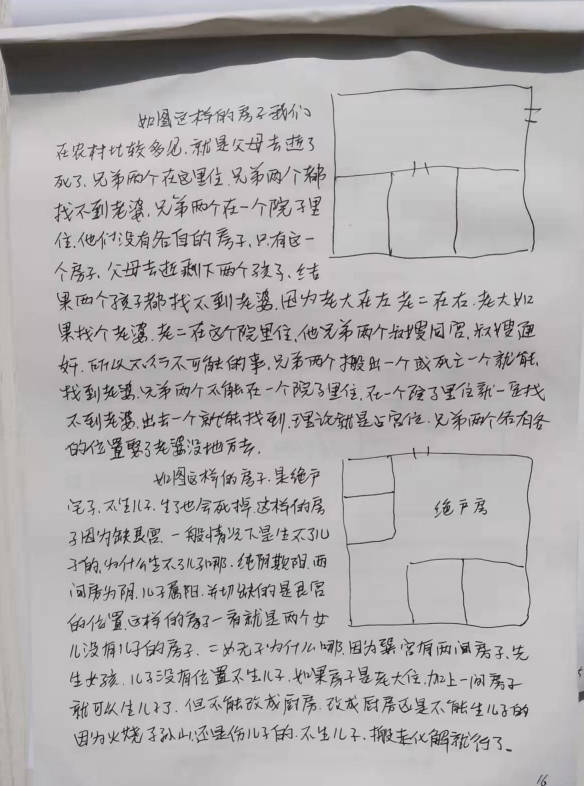 如图这样的房子我们
在农村比较多见,就是父母去逝了
死了,兄弟两个在这里住,兄弟两个都
找不到老婆,兄弟两个在一个院子里
住,他们没有各自的房子,只有这一
个房子,父母去逝剩下两个孩子,结
果两个孩子都找不到老婆,因为老大在左老二在右,老大如
果找个老婆,老二在这个院里住,他兄弟两个叔嫂同宫,叔嫂通
奸,所以不行不可能的事,兄弟两个搬出一个或死亡一个就能
找到老婆,兄弟两个不能在一个院子里住,在一个院子里住就一直找
不到老婆,出去一个就能找到,理论就是占宫位,兄弟两个各有各
的位置娶了老婆没地方去。
如图这样的房子,是绝户
宅子,不生儿子,生了也会死掉,这样的房
子因为缺艮宫,一般情况下是生不了儿
子的,为什么生不了儿子哪,纯阴欺阳,两
间房为阴,儿子属阳,关切缺的是艮宫
的位置,这样的房子一看就是两个女
儿没有儿子的房子,二女无子为什么哪,因为巽宫有两间房子,先
生女孩,儿子没有位置不生儿子,如果房子是老大位,加上一间房子
就可以生儿子了,但不能改成厨房,改成厨房还是不能生儿子的
因为火烧子孙山,还是伤儿子的,不生儿子,搬走化解就行了。
绝户房
16